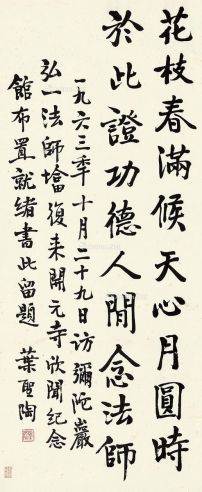 花枝春滿候天心月圓時
於此證功德人間念法師
一九六三年十月二十九日访彌陀巖
弘一法師墖復来開元寺欣聞纪念
館布置就緒書此留題 葉聖陶